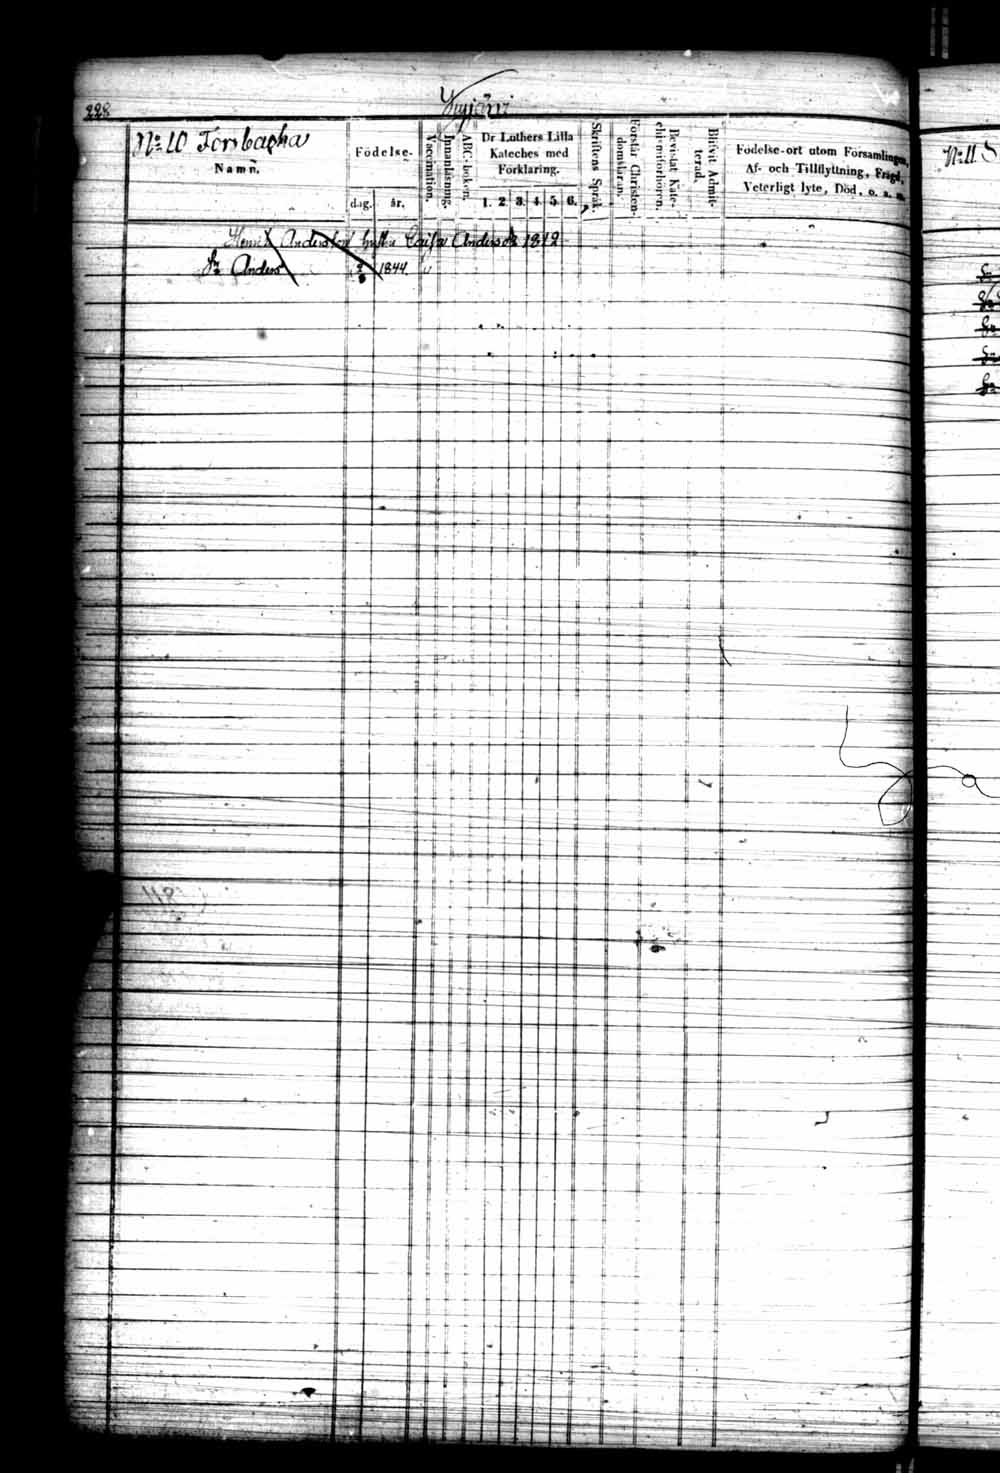 228
№ 10 Torsbacka
Namn.
Födelse-
dag. år.
Vaccination.
Innanläsning.
ABC-boken.
Dr Luthers Lilla
Kateches med
Förklaring.
1. 2. 3. 4. 5. 6.
Skriftens Språk.
Förstår Christen-
domsläran.
Bevistat Kate-
chismiförhören.
Blifvit Admit-
terad.
Födelse-ort utom Församlingen,
Af- och Tillflyttning, Frägd,
Veterligt lyte, Död, o. s. v.
Henrik Andersson hustru Caisa Andersdr 1842
Anders 1844.
№ 11